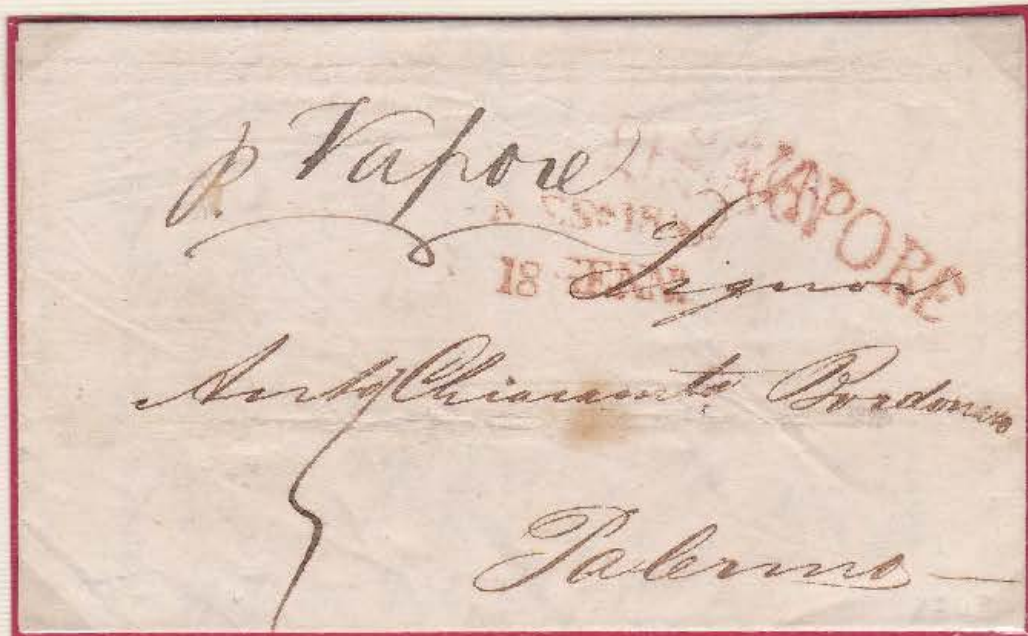 p. Vapore
VAPORE
18 GENN
Signor
Chiaramonte Bordonaro
Palermo